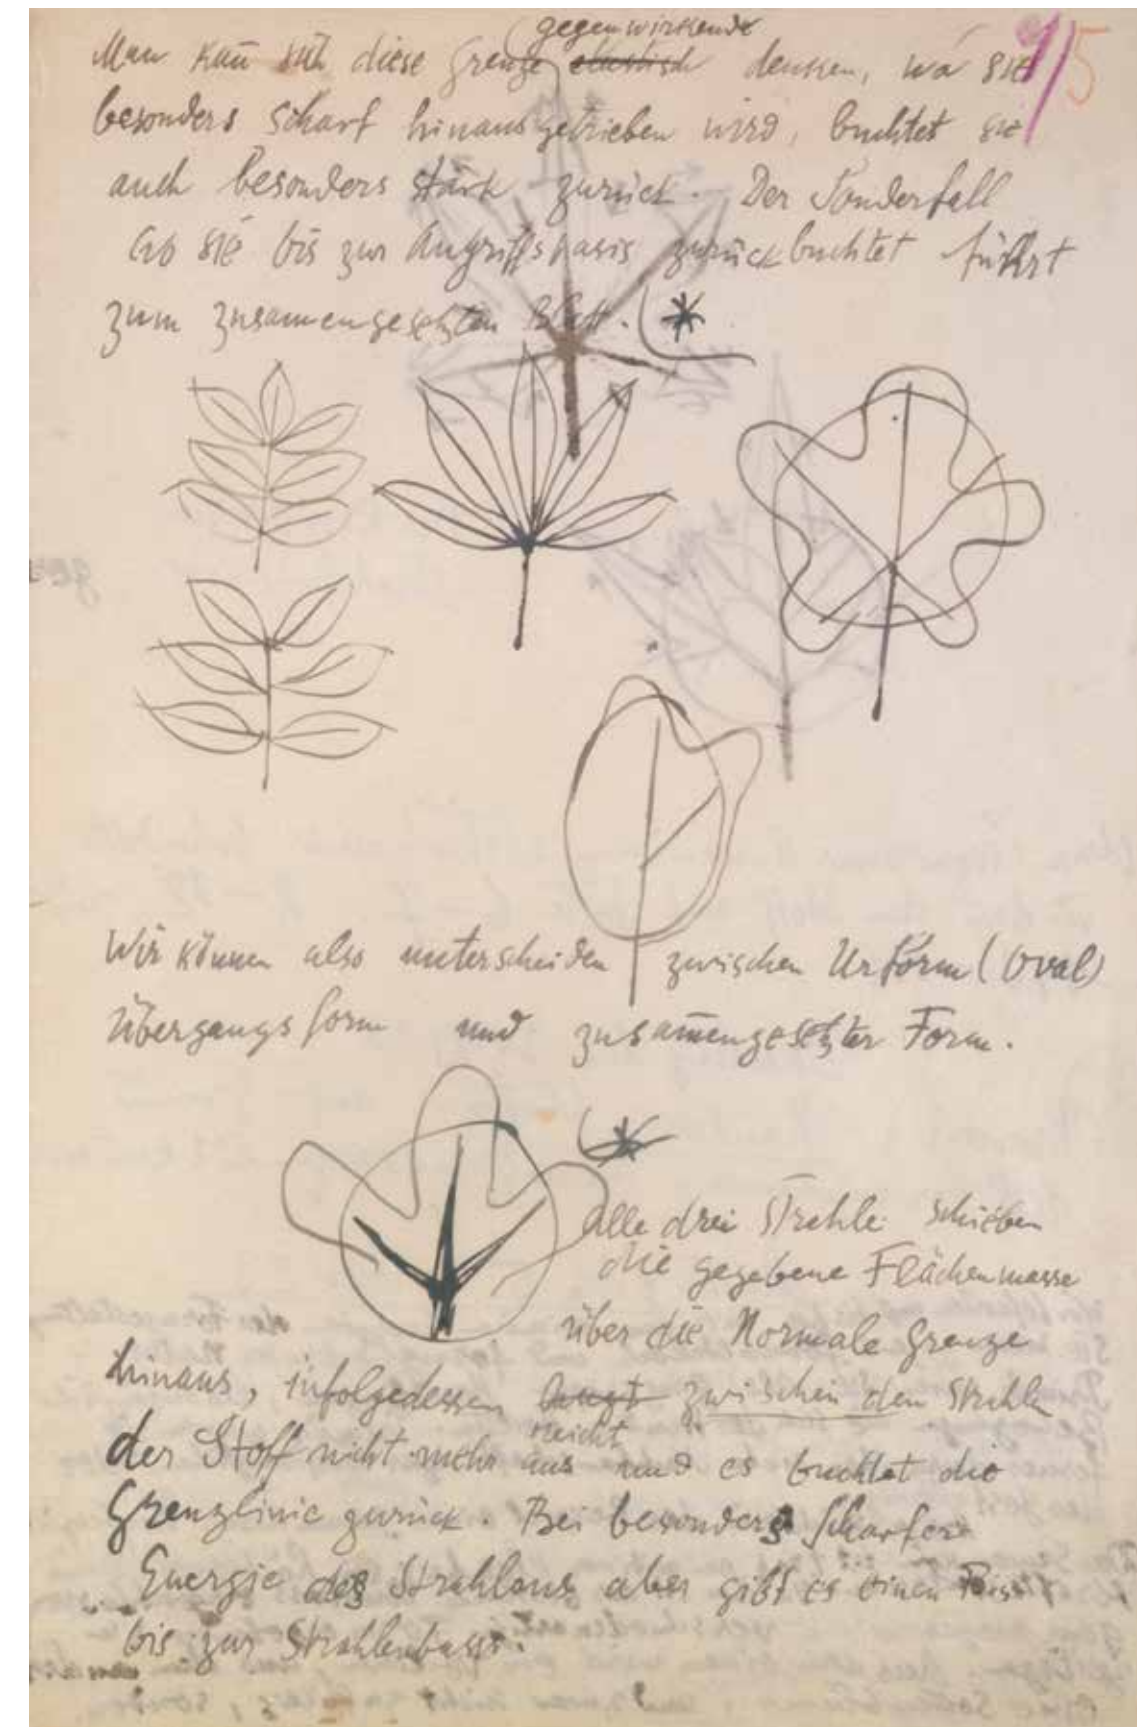 gegenwirkende
Man kañ sich diese Grenze elastisch denken, wo sie 9/5
besonders scharf hinausgetrieben wird, buchtet sie
auch besonders stark zurück. Der Sonderfall
wo sie bis zur Angriffsbasis zurückbuchtet führt
zum zusamengesetzten Blatt.
Wir können also unterscheiden zwischen Urform (Oval)
Übergangsform und zusam̄engesetzter Form.
Alle drei Strahle schieben
die gegebene Flächenmasse
über die Normale Grenze
hinaus, infolgedessen langt zwischen den Strahlen
reicht
der Stoff nicht mehr aus und es buchtet die
Grenzlinie zurück. Bei besonders scharfer
Energie des Strahlens aber gibt es einen
bis zur Strahlenbasis.